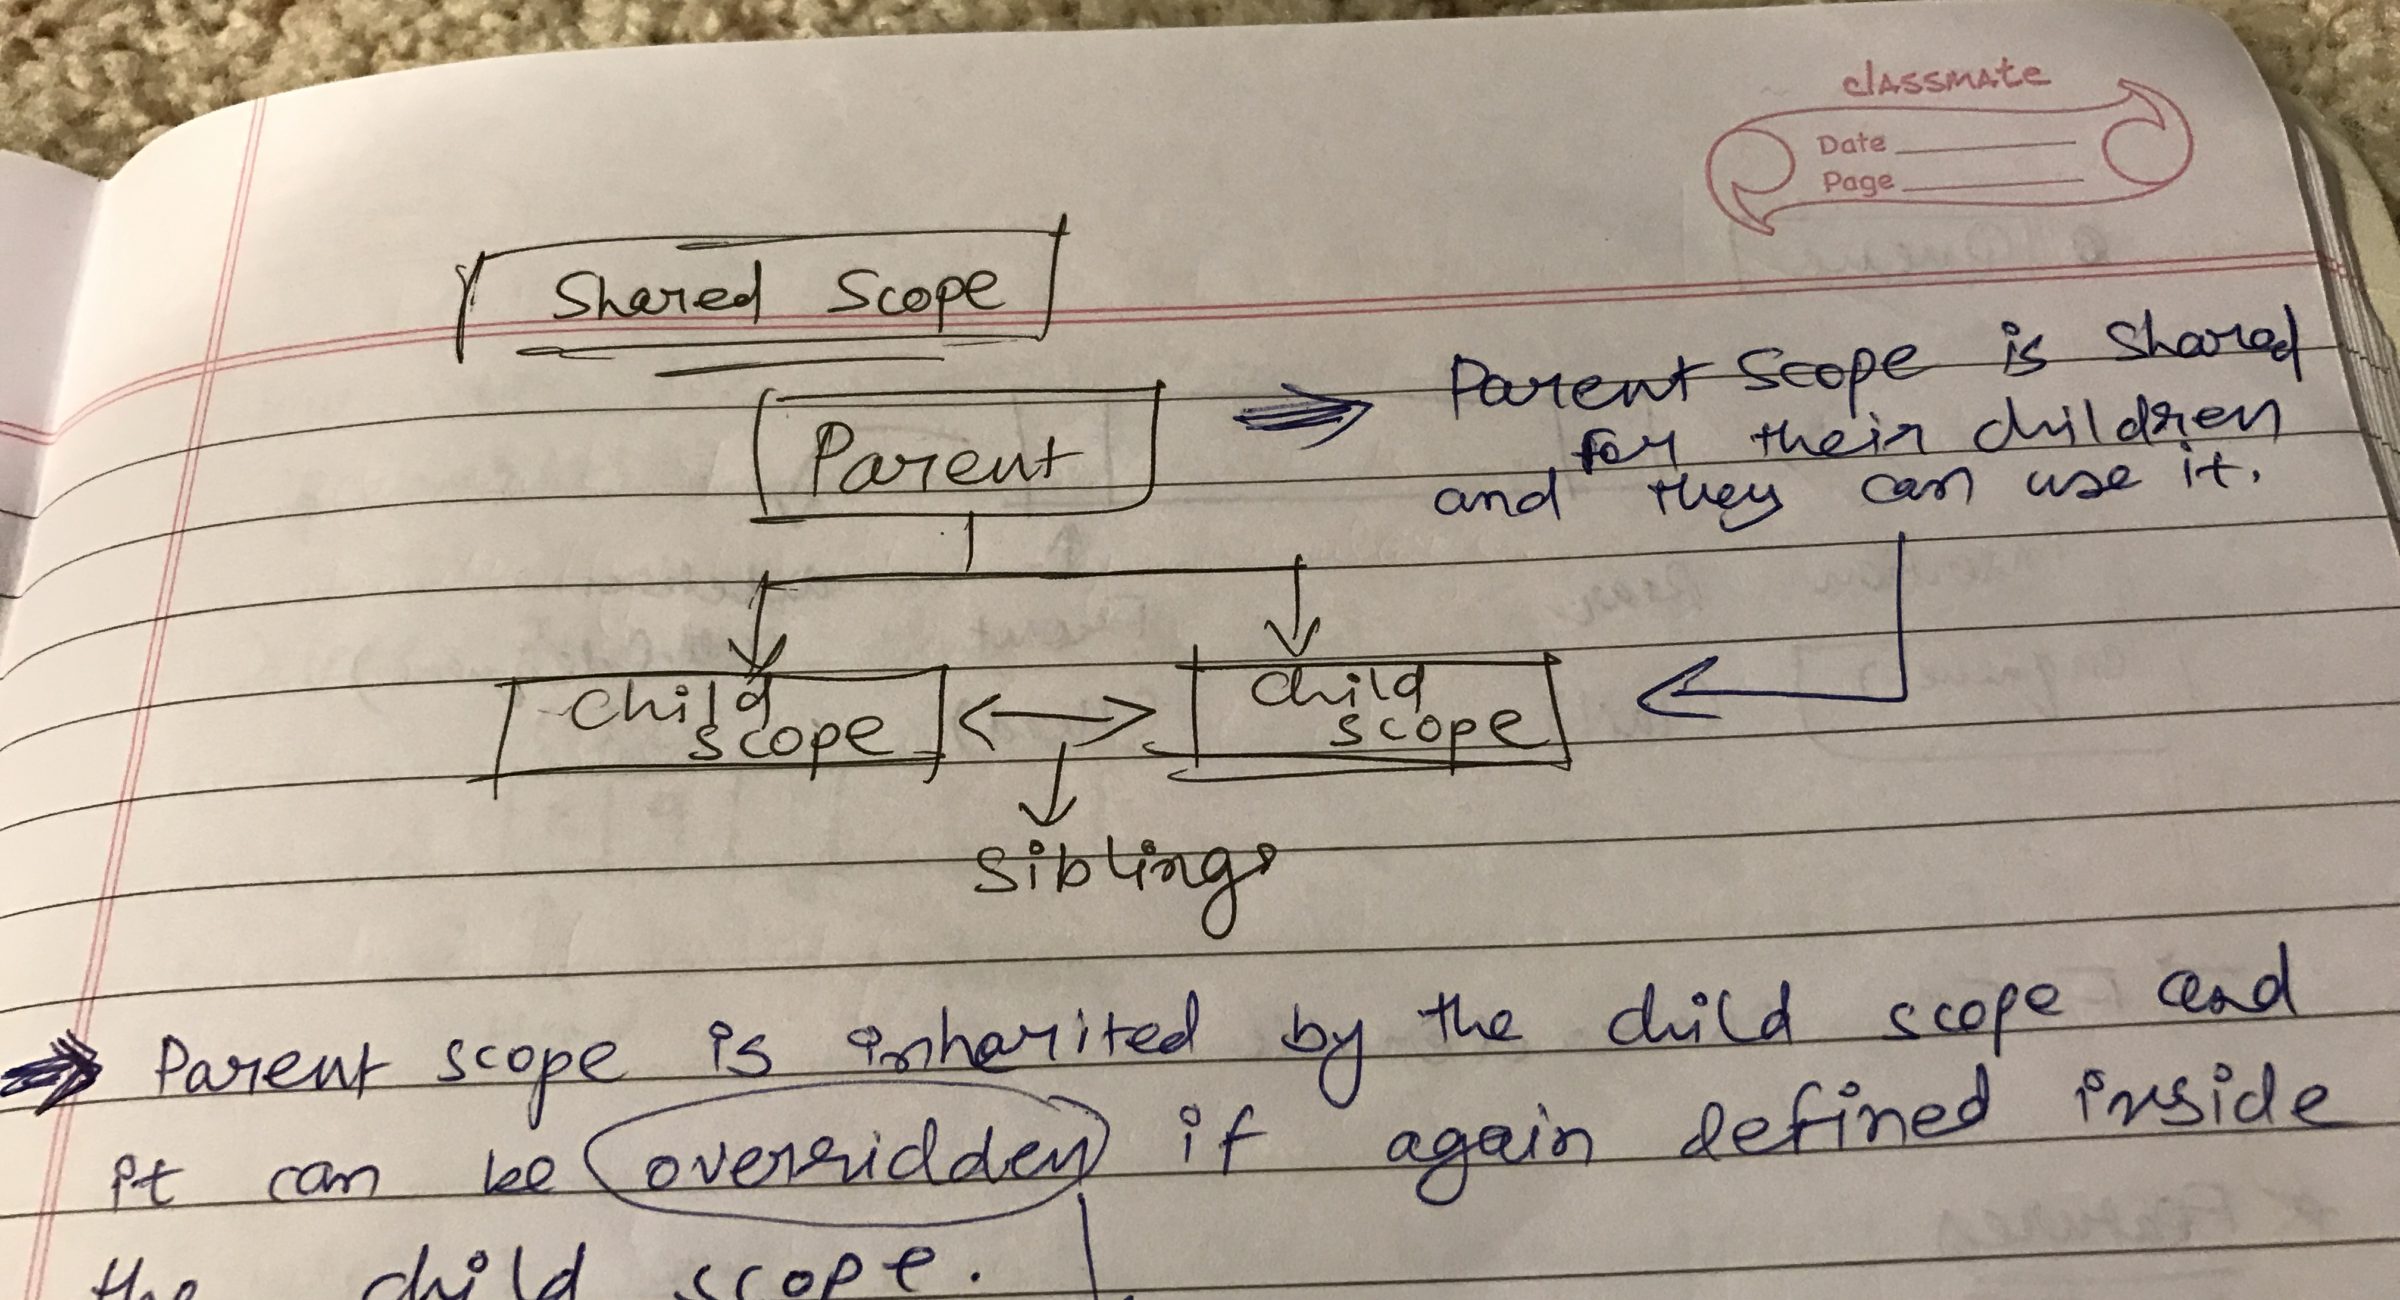 classmate
Date
Page
Shared Scope
Parent
Parent Scope is shared
for their children
and they can use it.
Child
scope
Child
scope
Siblings
Parent scope is inharited by the child scope and
it can be overridden if again defined inside
the child scope.